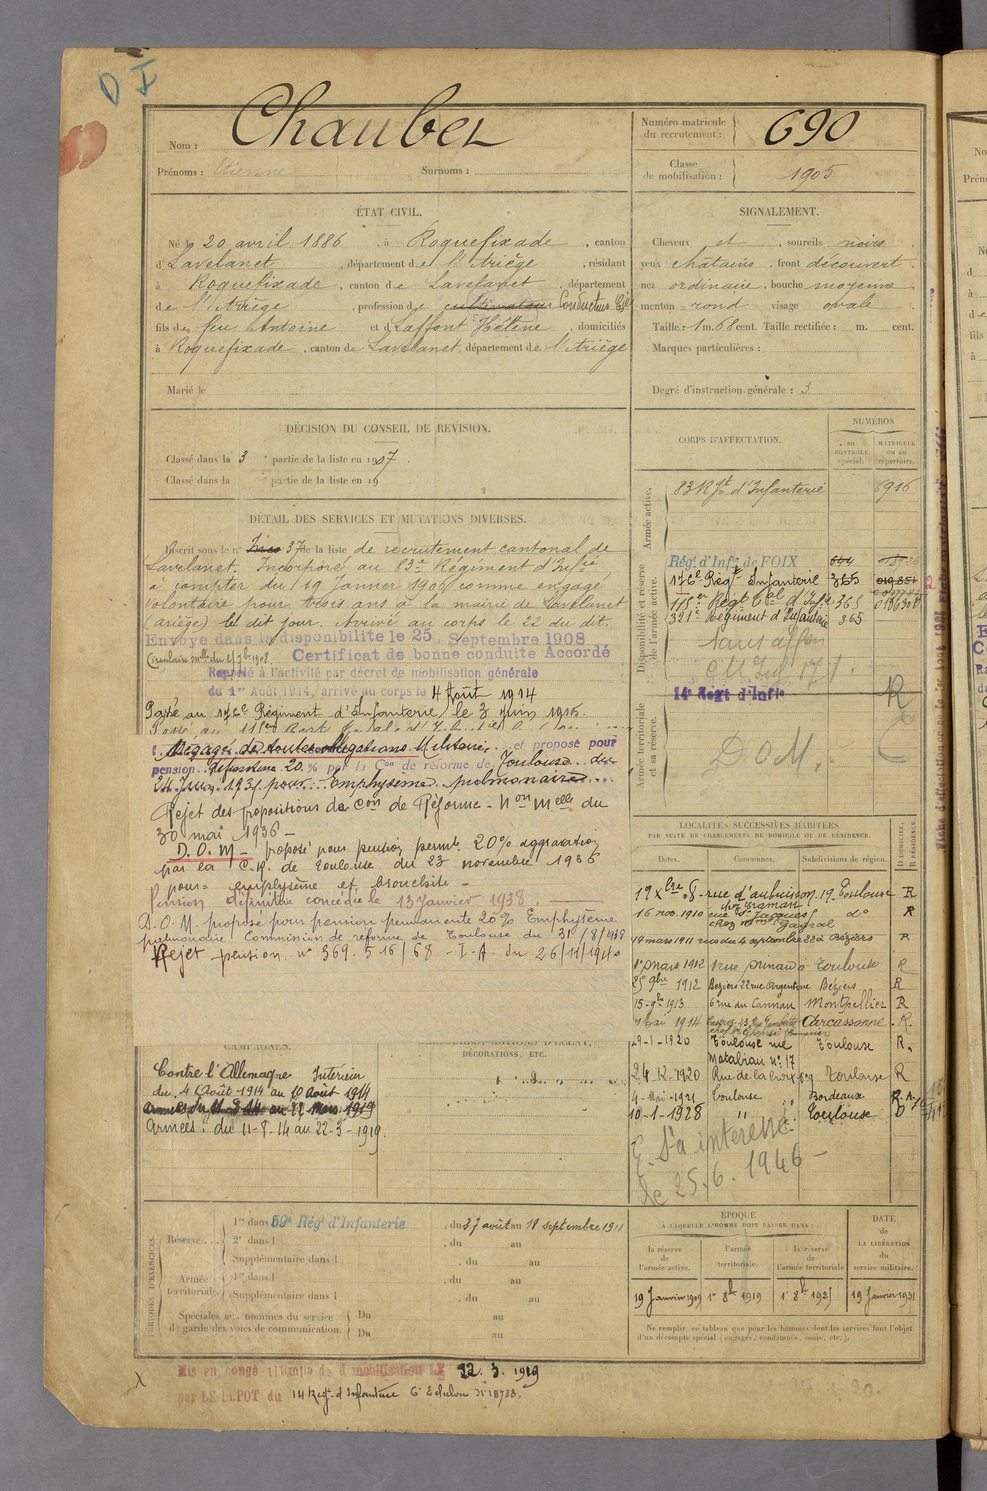 D I
Nom : Chaubet
Prénoms : Etienne Surnoms :
Numéro matricule du recrutement : 690
Classe de mobilisation : 1905
ÉTAT CIVIL.
Né le 20 avril 1886, à Roquefixade, canton
d Lavelanet, département de l'Ariège, résidant
à Roquefixade, canton de Lavelanet, département
de l'Ariège, profession de cultivateur Conducteur
fils de feu Antoine et d Laffont Hélène, domiciliés
à Roquefixade, canton de Lavelanet, département de l'Ariège
Marié le
SIGNALEMENT.
Cheveux et, sourcils noirs
yeux châtains, front découvert
nez ordinaire, bouche moyenne
menton rond visage ovale
Taille : 1 m. 68 cent. Taille rectifiée : m. cent.
Marques particulières :
Degré d'instruction générale : 3
DÉCISION DU CONSEIL DE REVISION.
Classé dans la 3e partie de la liste en 1907.
Classé dans la partie de la liste en 19
DÉTAIL DES SERVICES ET MUTATIONS DIVERSES.
Inscrit sous le n° 37 de la liste de recrutement cantonal de
Lavelanet. Incorporé au 83e Régiment d'Infie
à compter du 19 Janvier 1906 comme engagé
volontaire pour trois ans à la mairie de Lavelanet
(ariège) le dit jour. Arrivé au corps le 22 du dit.
Envoyé dans la disponibilité le 25 Septembre 1908
Certificat de bonne conduite Accordé
Rappelé à l'activité par décret de mobilisation générale
du 1er Août 1914, arrivé au corps le 4 Août 1914
Passé au 176e Régiment d'Infanterie, le 3 Juin 1915.
Dégagé de toutes obligations Militaires et proposé pour
pension temporaire 20 % par la Con de réforme de Toulouse du
24 Juin 1931 pour Emphysème pulmonaire
Rejet des propositions de la Con de Réforme - Non Melle du
30 mai 1936 -
D. O. M - proposé pour pension permte 20% aggravation
par la C.R. de Toulouse du 23 novembre 1936
pour = emphysème et bronchite -
Pension définitive concédée le 13 Janvier 1938.
D. O. M. proposé pour pension permanente 20% Emphysème
pulmonaire Commission de réforme de Toulouse du 31/8/1938
Rejet pension n° 369.516/68 - I.A. du 26/11/1940
CORPS D'AFFECTATION.
NUMÉROS
AU CONTRÔLE spécial.
MATRICULE ou au répertoire.
Armée active.
83e Rgt d'Infanterie 6916
Disponibilité et réserve de l'armée active.
Régt. d'Infie de FOIX
176e Regt Infanterie 365
115e Regt d'Infie 365
321e Régiment d'Infanterie 365
Sans affon
Armée territoriale et sa réserve.
14e Regt d'Infie
R
D.O.M.
LOCALITÉS SUCCESSIVES HABITÉES
PAR SUITE DE CHANGEMENTS DE DOMICILE OU DE RÉSIDENCE.
Dates. Communes. Subdivisions de région.
D DOMICILE. R RÉSIDENCE.
19 Xbre 08 rue d'aubuisson 19 Toulouse R
16 nov. 1910 rue St Jacques do R
14 mars 1911 rue du 4 septembre 22 à Béziers R
1er mars 1912 1 rue Arnaud à Toulouse R
25 9bre 1912 Béziers 22 rue Argentine Béziers R
15-9bre 1913 6 rue du Cannau Montpellier R
Mai 1914 Carcassonne R
29-1-1920 Toulouse rue Matabiau n° 17 Toulouse R
24-12-1920 Rue de la Croix Toulouse R
4-Mai-1921 Toulouse Bordeaux R.A.
10-1-1928 " Toulouse D
Sa interessé
le 25.6.1946 -
CAMPAGNES.
Contre l'Allemagne Intérieur
du 4 Août 1914 au 10 Août 1914
Armées du 11-8-14 au 22 Mars 1919
Armées : du 11-8-14 au 22-3-1919.
DÉCORATIONS, ETC.
PÉRIODES D'EXERCICES.
Réserve
1re dans l 59e Régt d'Infanterie, du 27 août au 18 septembre 1911
2e dans l , du au
Supplémentaire dans l , du au
Armée territoriale
1re dans l , du au
Supplémentaire dans l , du au
Spéciales aux hommes du service de garde des voies de communication.
Du au
Du au
ÉPOQUE
À LAQUELLE L'HOMME DOIT PASSER DANS :
la réserve de l'armée active.
l'armée territoriale.
la réserve de l'armée territoriale
DATE DE LA LIBÉRATION du service militaire.
19 Janvier 1909 1er 8bre 1919 1er 8bre 1925 19 Janvier 1931
Ne remplir ce tableau que pour les hommes dont les services font l'objet
d'un décompte spécial (engagés, condamnés, omis, etc.).
Mis en congé illimité de démobilisation LE 22.3.1919
par LE DEPOT du 14 Regt. d'Infanterie 6e Echelon N° 18733.